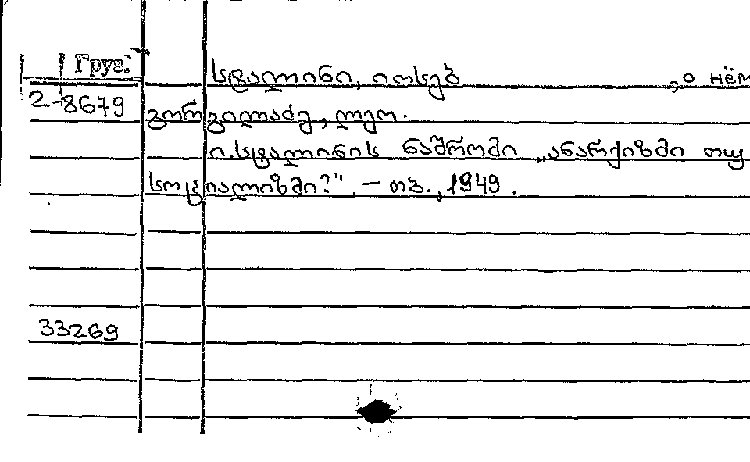 Груз. სტალინი, იოსებ „о нём
2-8679 გორგილაძე, ლეო.
ი. სტალინის ნაშრომი „ანარქიზმი თუ
სოციალიზმი?", – თბ., 1949.
33269